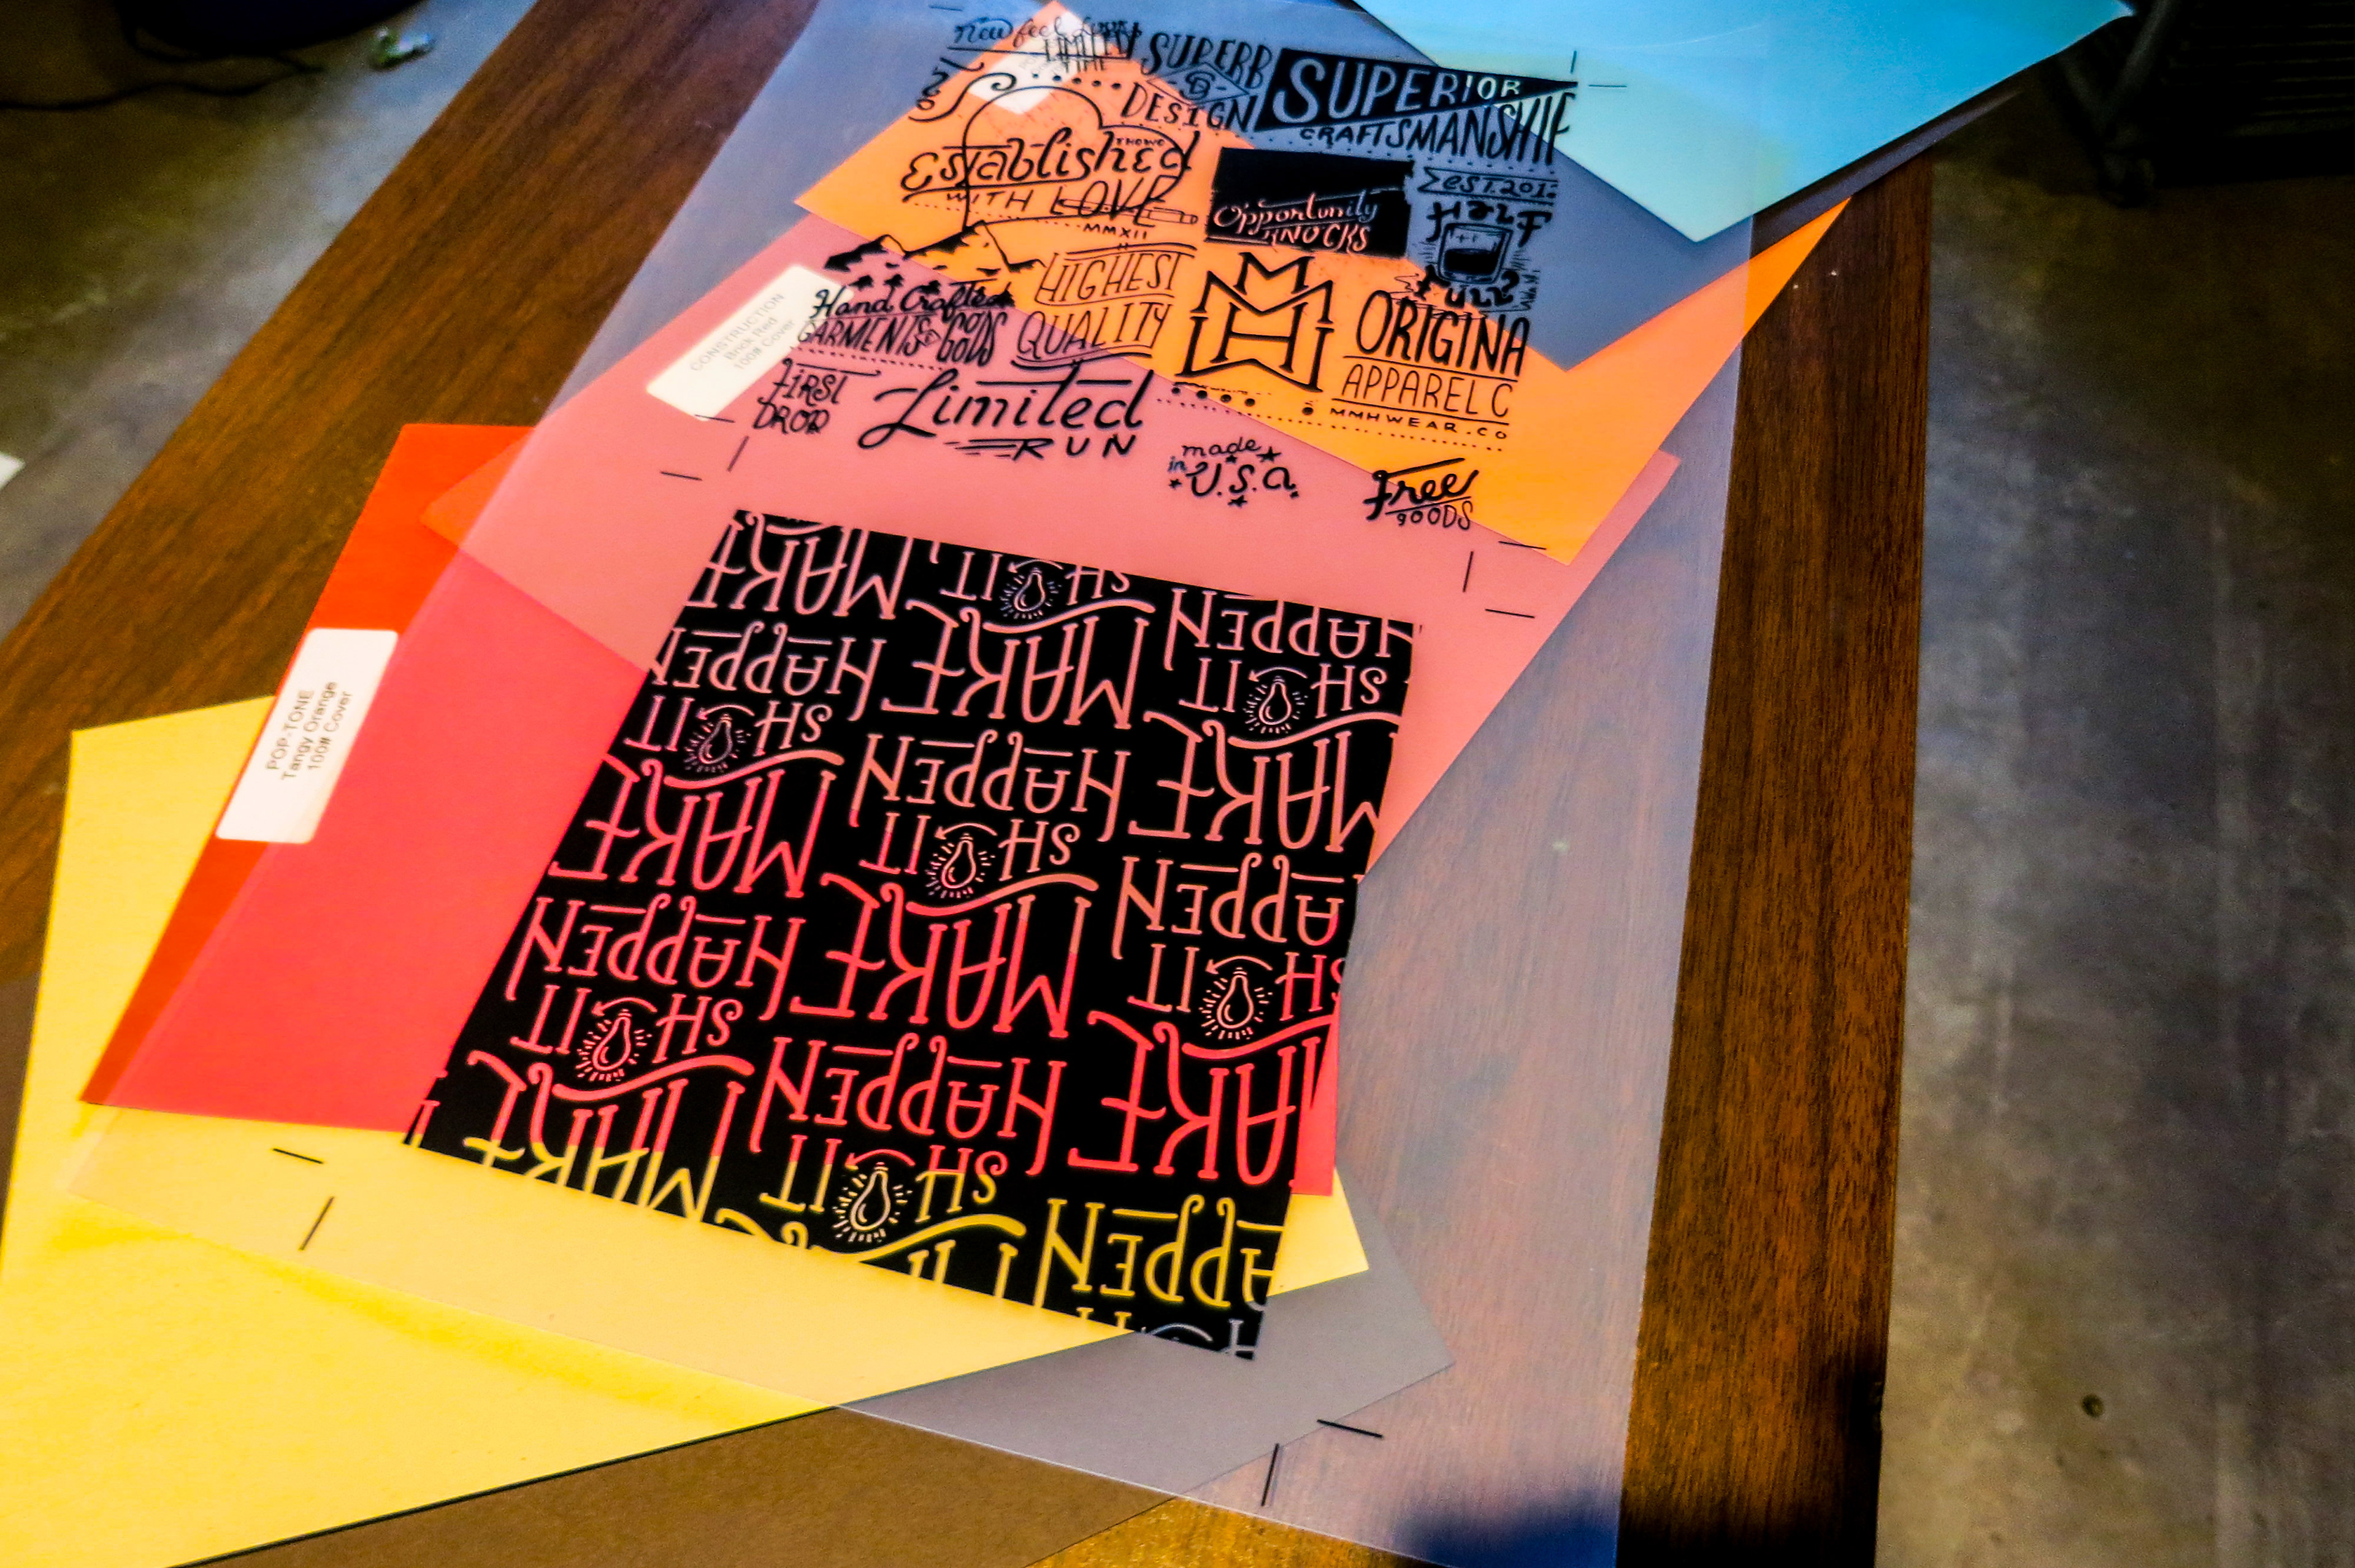 New feel
LIMITED
TIME
SUPERB
DESIGN
SUPERIOR
CRAFTSMANSHIP
Established
WITH LOVE
MMXII
Opportunity
KNOCKS
EST. 201
HALF
FULL?
Hand Crafted
GARMENTS & GOODS
HIGHEST
QUALITY
MMH
ORIGINA
APPAREL C
MMHWEAR.CO
FIRST
DROP
Limited
RUN
made
in
U.S.A.
Free
GOODS
CONSTRUCTION
Brick Red
100# Cover
POP-TONE
Tangy Orange
100# Cover
MAKE
SH IT
HAPPEN
MAKE
SH IT
HAPPEN
MAKE
SH IT
HAPPEN
MAKE
SH IT
HAPPEN
MAKE
SH IT
HAPPEN
MAKE
SH IT
APPEN
MAKE
SH IT
HAPPEN
ARE
APPEN